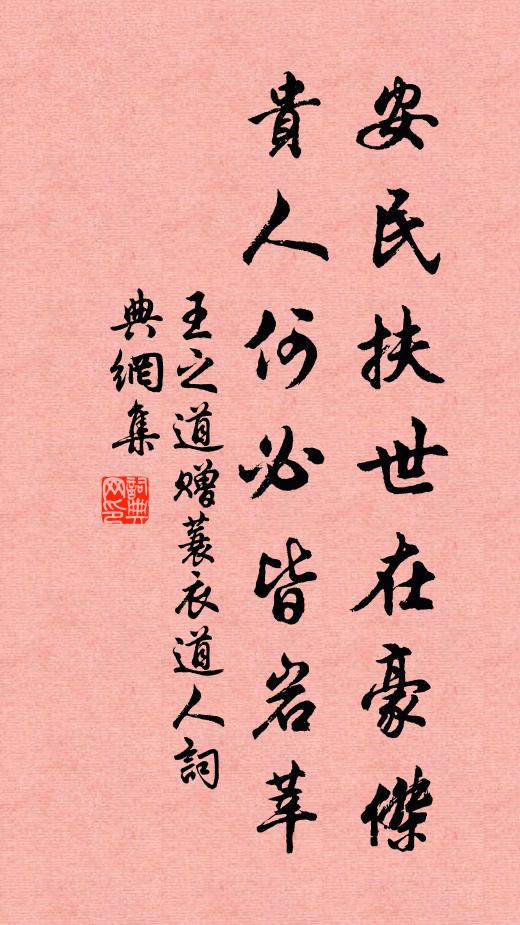 安民扶世在豪傑
貴人何必皆岩莘
王之道贈蓑衣道人詞
典網集
詞典
网印